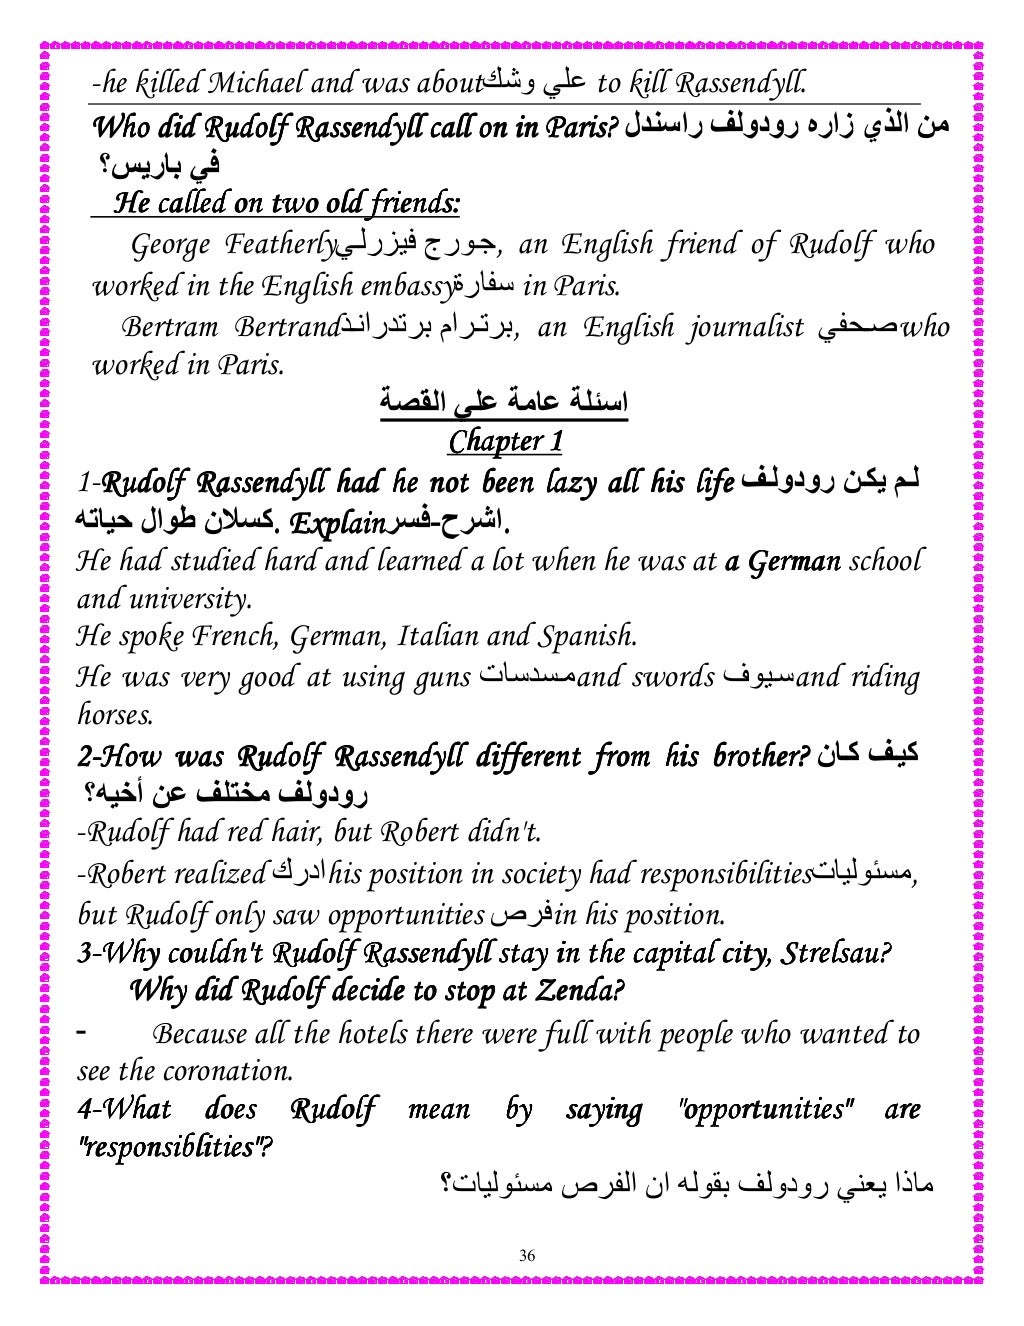 -he killed Michael and was about علي وشك to kill Rassendyll.
Who did Rudolf Rassendyll call on in Paris? من الذي زاره رودولف راسندل
في باريس؟
He called on two old friends:
George Featherly جورج فيزرلي, an English friend of Rudolf who
worked in the English embassy سفارة in Paris.
Bertram Bertrand برترام برتدراند, an English journalist صحفي who
worked in Paris.
اسئلة عامة علي القصة
Chapter 1
1-Rudolf Rassendyll had he not been lazy all his life لم يكن رودولف
كسلان طوال حياته. Explain اشرح-فسر.
He had studied hard and learned a lot when he was at a German school
and university.
He spoke French, German, Italian and Spanish.
He was very good at using guns مسدسات and swords سيوف and riding
horses.
2-How was Rudolf Rassendyll different from his brother? كيف كان
رودولف مختلف عن أخيه؟
-Rudolf had red hair, but Robert didn't.
-Robert realized ادرك his position in society had responsibilities مسئوليات,
but Rudolf only saw opportunities فرص in his position.
3-Why couldn't Rudolf Rassendyll stay in the capital city, Strelsau?
Why did Rudolf decide to stop at Zenda?
- Because all the hotels there were full with people who wanted to
see the coronation.
4-What does Rudolf mean by saying "opportunities" are
"responsiblities"?
ماذا يعني رودولف بقوله ان الفرص مسئوليات؟
36